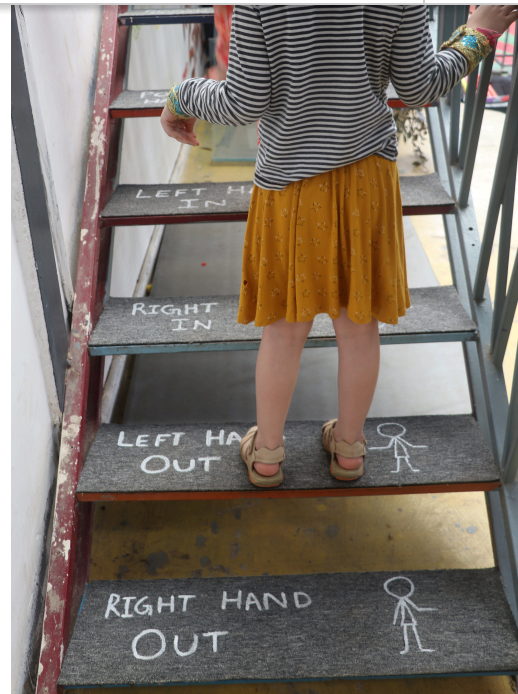 LEFT HA
IN
RIGHT
IN
LEFT HA
OUT
RIGHT HAND
OUT